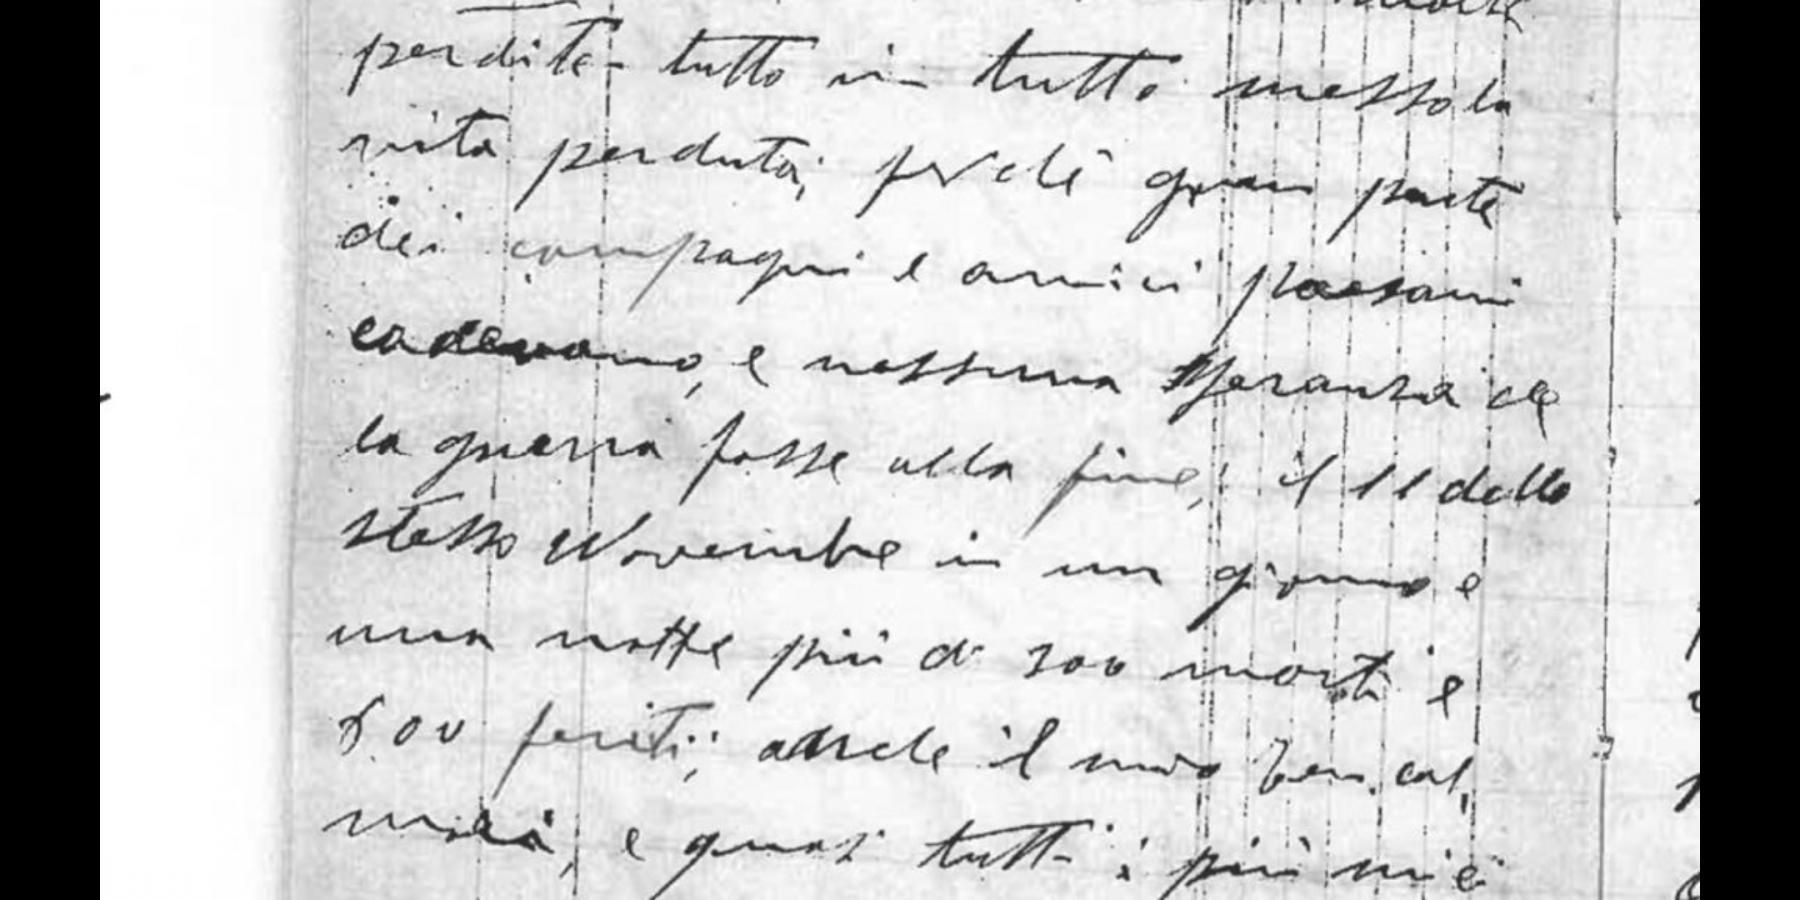 perdite tutto in tutto messo la
vita perduta, perchè gran parte
dei compagni e amici paesani
cadevano, e nessuna speranza che
la guerra fosse alla fine, il 11 dello
stesso Novembre in un giorno e
una notte più di 300 morti e
500 feriti; anche il mio Ten. Col.
morì, e quasi tutti i più miei